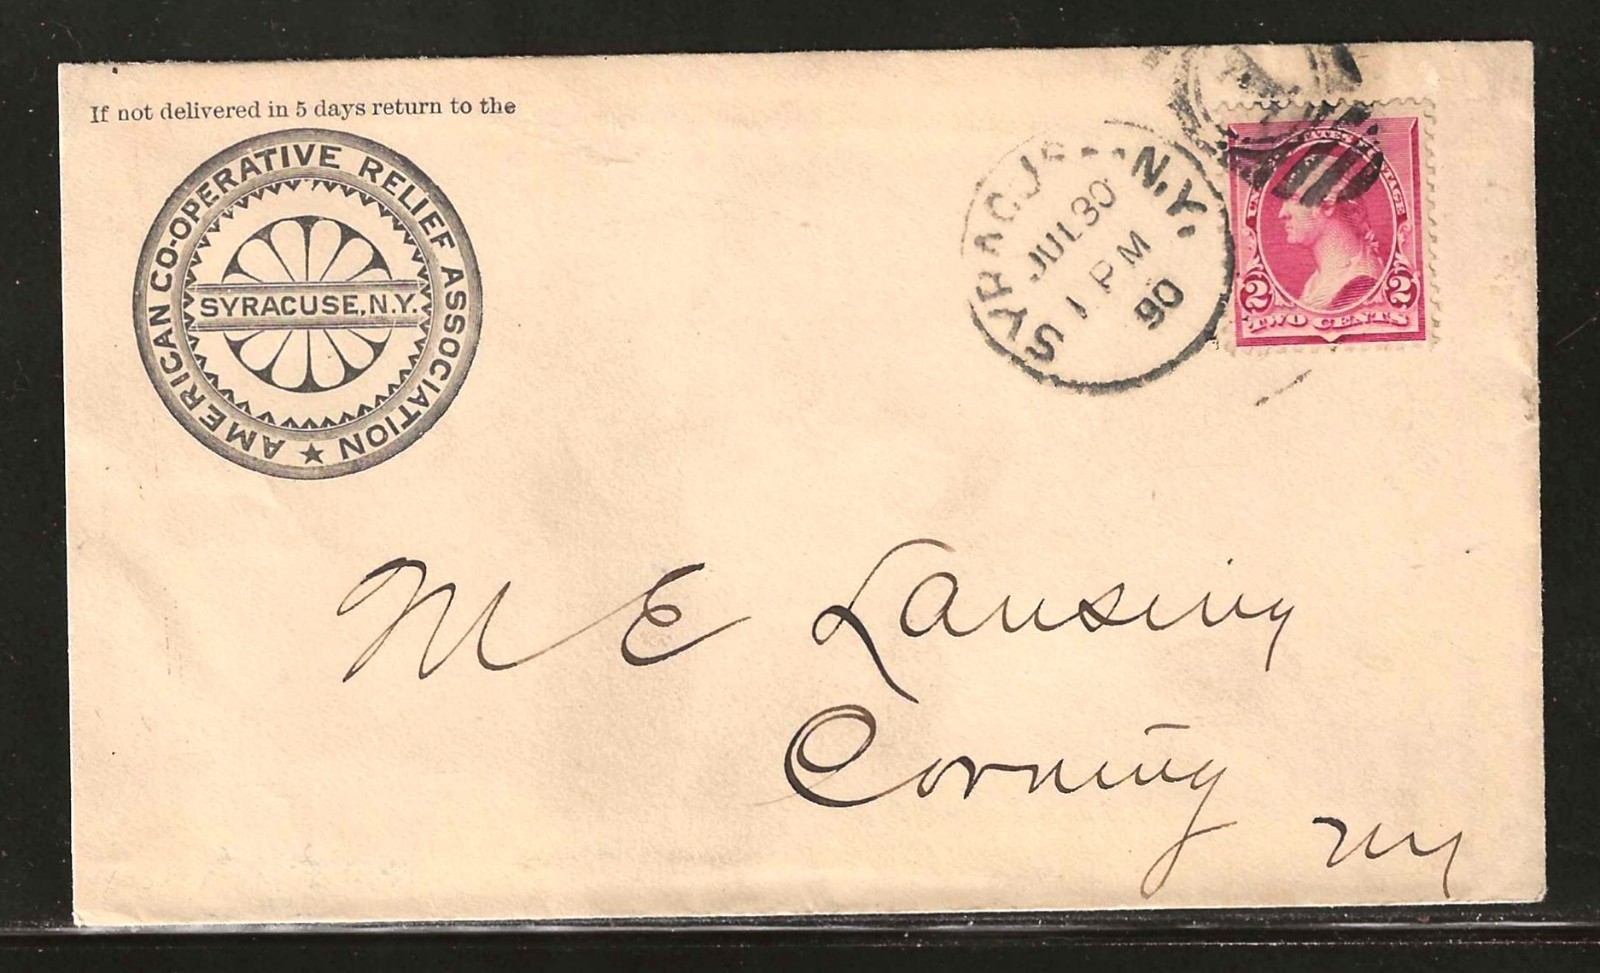 If not delivered in 5 days return to the
AMERICAN CO-OPERATIVE RELIEF ASSOCIATION ★
SYRACUSE, N.Y.
SYRACUSE N.Y.
JUL 30
1 PM
90
UNITED STATES POSTAGE
2 2
TWO CENTS
M E Lansing
Corning
NY